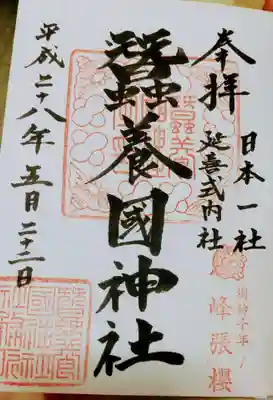 奉拝
日本一社
延喜式内社
樹齢千年ノ
峰張櫻
蠶養國神社
平成二十八年五月二十二日